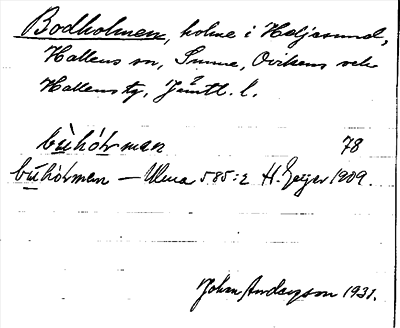 Bodholmen, holme i Heljesund,
Hallens sn, Sunne, Ovikens och
Hallens tg, Jämtl. l.
bùhóɫman 78
bùhóɫmen — Ulma 585:2 H. Geijer 1909.
Johan Anderson 1931.